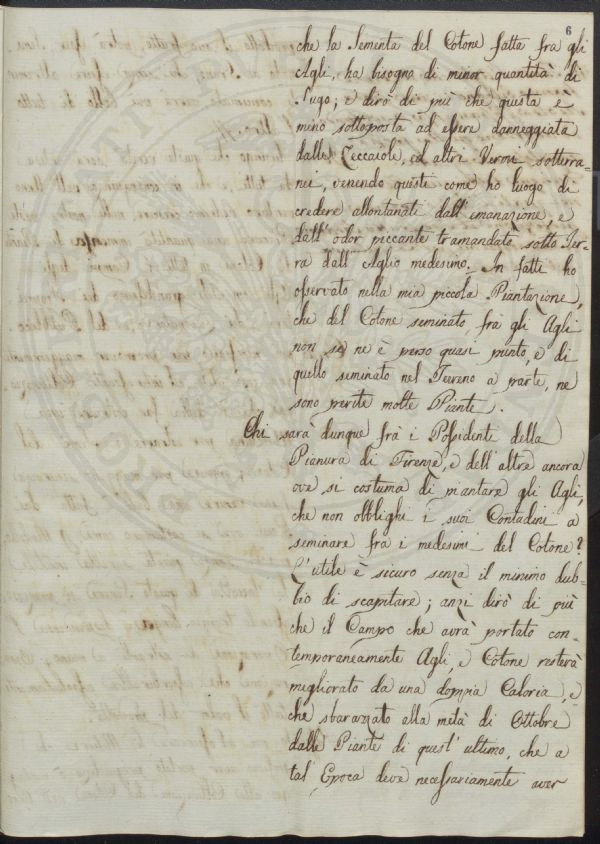 6
che la Sementa del Cotone fatta fra gli
Agli, ha bisogno di minor quantità di
Sugo; e dirò di più che questa è
meno sottoposta ad essere danneggiata
dalle Zeccaiole, ed altri Vermi sotterra=
nei, venendo questi come ho luogo di
credere allontanati dall'emanazione, e
dall'odor piccante tramandato sotto Ter=
ra dall'Aglio medesimo. In fatti ho
osservato nella mia piccola Piantazione,
che del Cotone seminato frà gli Agli
non se ne è perso quasi punto, e di
quello seminato nel Terreno a parte, ne
sono perite molte Piante.
Chi sarà dunque frà i Possidenti della
Pianura di Firenze, e dell'altre ancora
ove si costuma di piantare gli Agli,
che non obblighi i suoi Contadini a
seminare frà i medesimi del Cotone?
L'utile è sicuro senza il minimo dub=
bio di scapitare; anzi dirò di più
che il Campo che avrà portato con=
temporaneamente Agli, e Cotone resterà
migliorato da una doppia Caloria, e
che sbarazzato alla metà di Ottobre
dalle Piante di quest'ultimo, che a
tal Epoca deve necessariamente aver